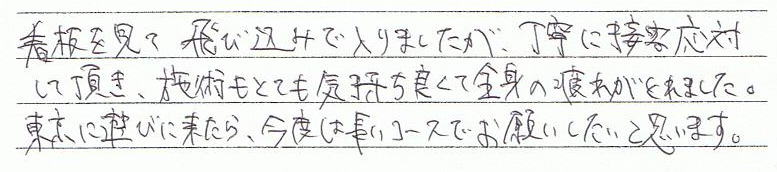 看板を見て 飛び込みで入りましたが、丁寧に接客応対
して頂き、施術もとても気持ち良くて全身の疲れがとれました。
東京に遊びに来たら、今度は長いコースでお願いしたいと思います。